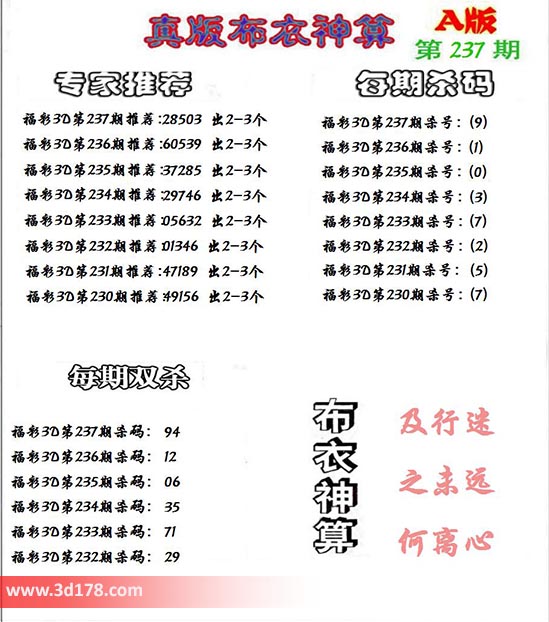 真版布衣神算
A版
第 237 期
专家推荐
福彩3D第237期推荐:28503 出2-3个
福彩3D第236期推荐:60539 出2-3个
福彩3D第235期推荐:37285 出2-3个
福彩3D第234期推荐:29746 出2-3个
福彩3D第233期推荐:05632 出2-3个
福彩3D第232期推荐:01346 出2-3个
福彩3D第231期推荐:47189 出2-3个
福彩3D第230期推荐:49156 出2-3个
每期杀码
福彩3D第237期杀号：(9)
福彩3D第236期杀号：(1)
福彩3D第235期杀号：(0)
福彩3D第234期杀号：(3)
福彩3D第233期杀号：(7)
福彩3D第232期杀号：(2)
福彩3D第231期杀号：(5)
福彩3D第230期杀号：(7)
每期双杀
福彩3D第237期杀码： 94
福彩3D第236期杀码： 12
福彩3D第235期杀码： 06
福彩3D第234期杀码： 35
福彩3D第233期杀码： 71
福彩3D第232期杀码： 29
布衣神算
及行迷
之未远
何离心
www.3d178.com